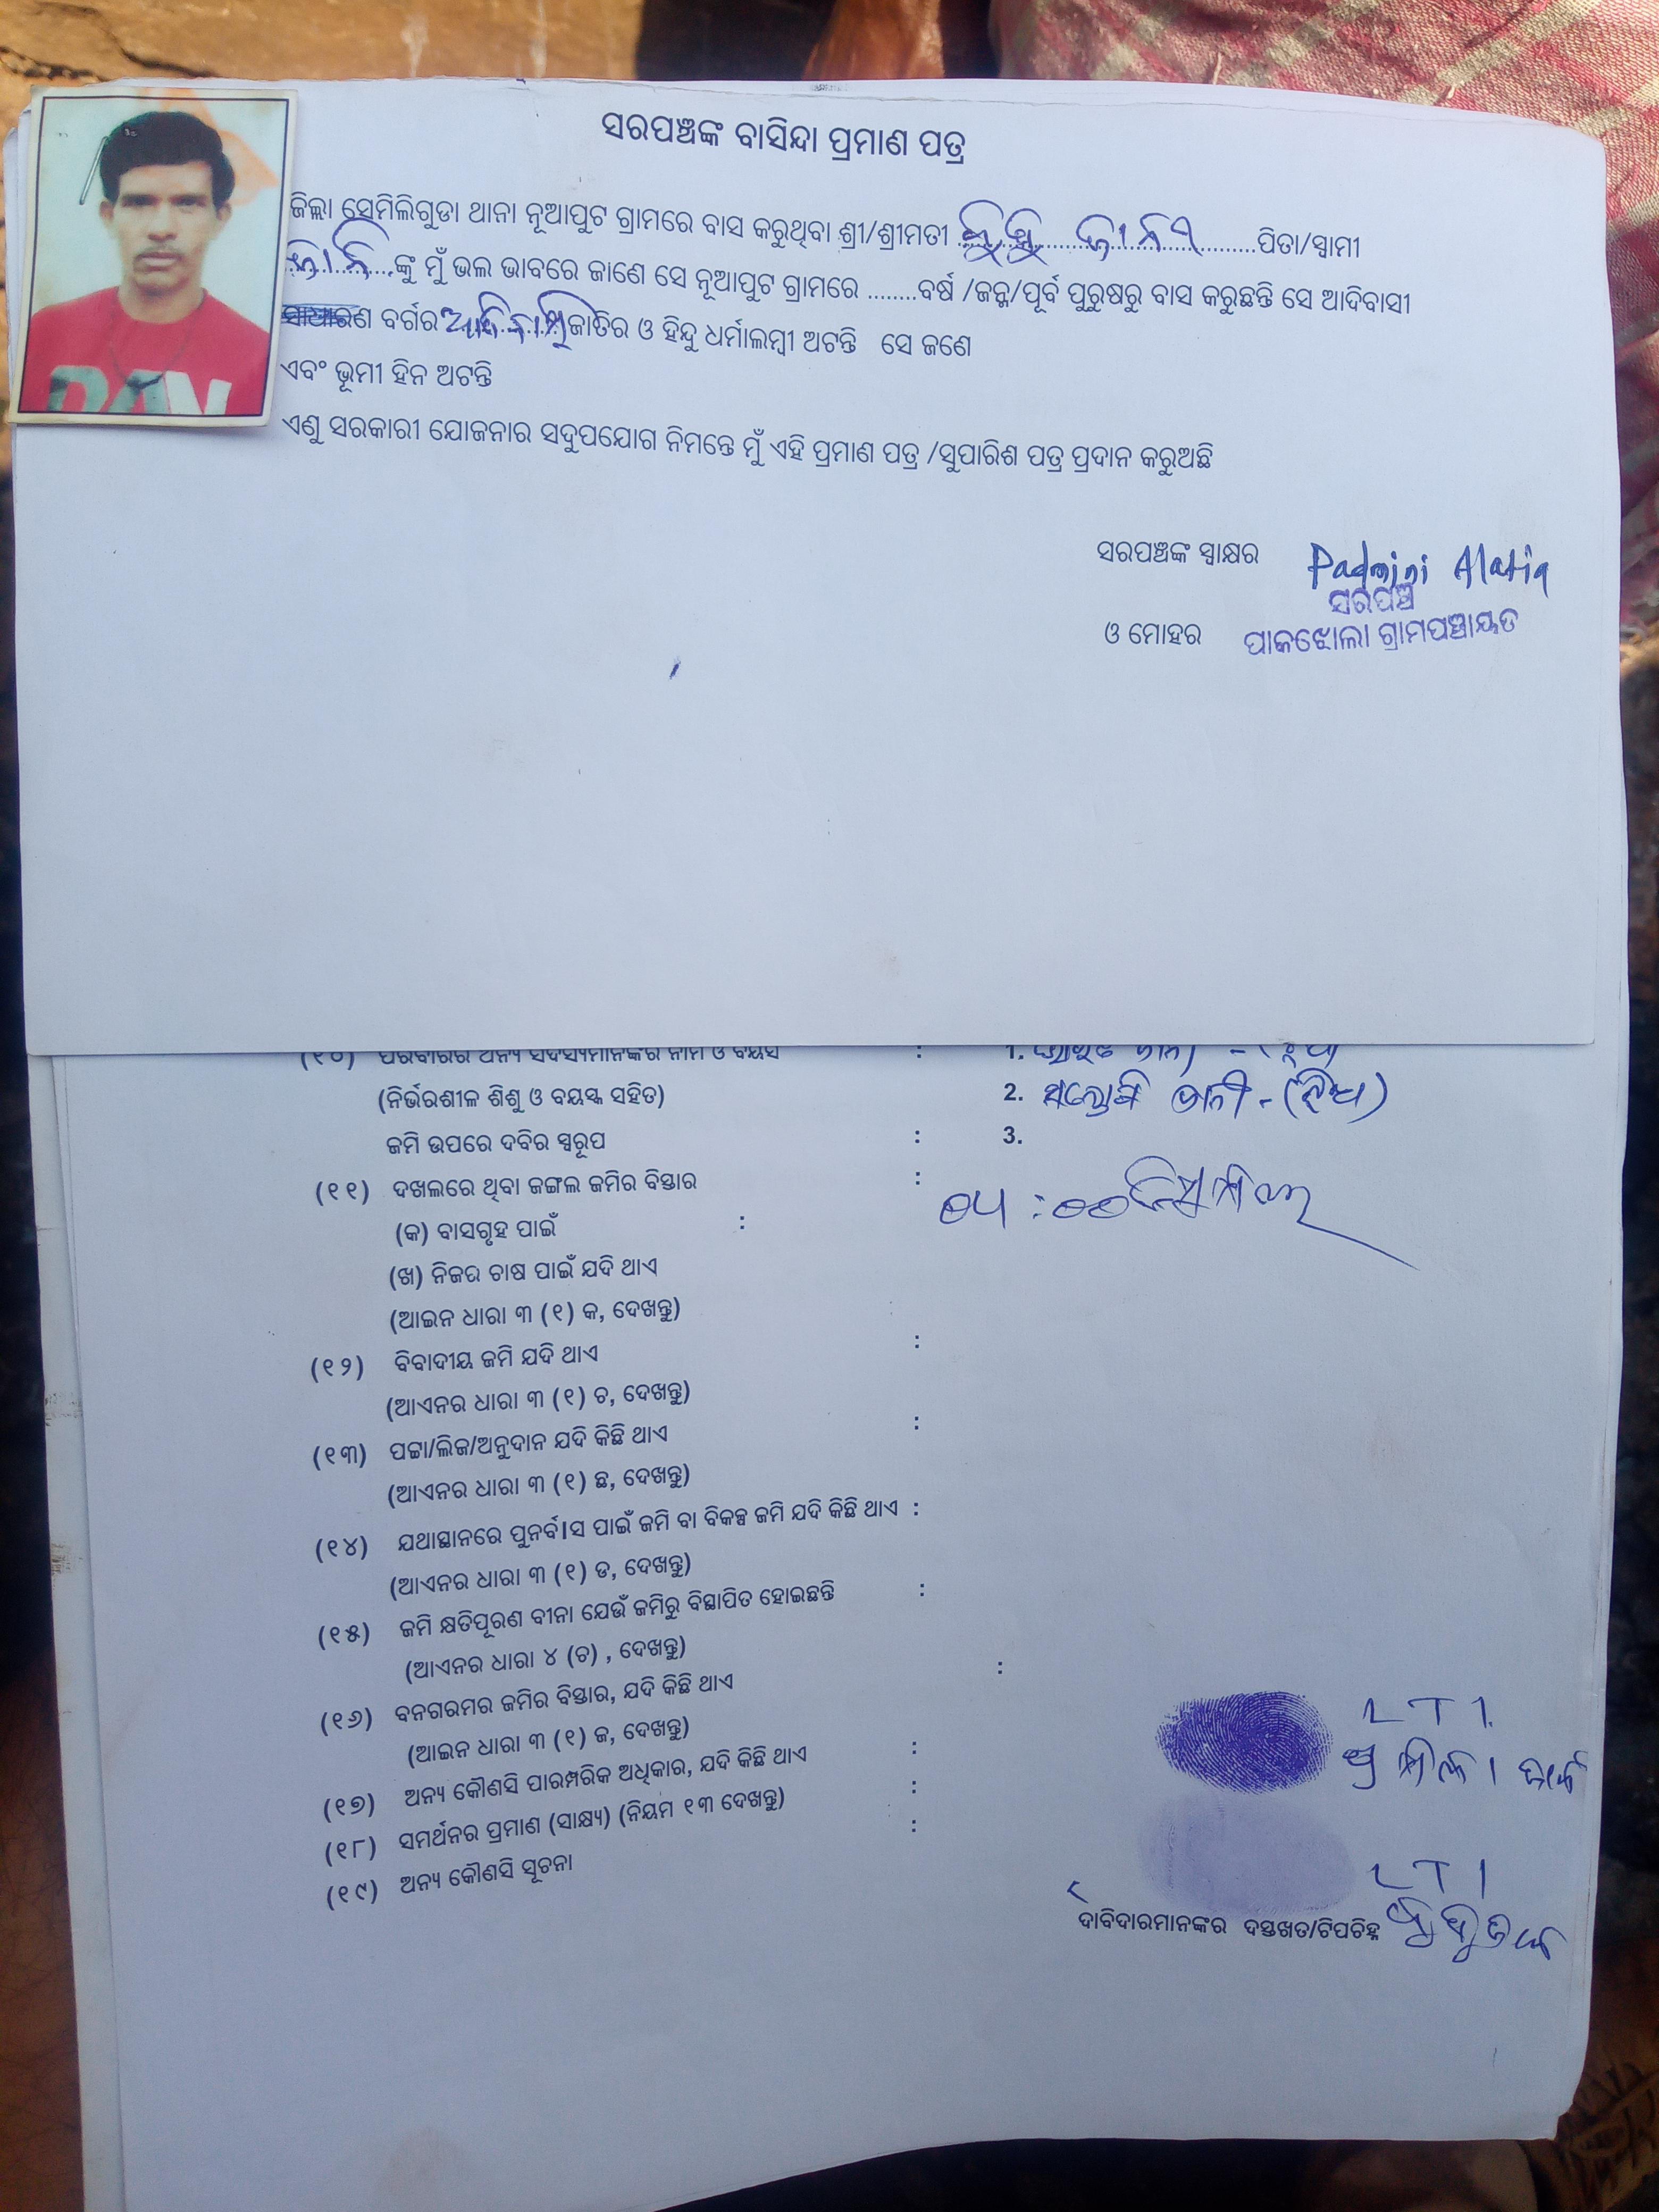 ସରପଞ୍ଚଙ୍କ ବାସିନ୍ଦା ପ୍ରମାଣ ପତ୍ର
ଜିଲ୍ଲା ସେମିଲିଗୁଡା ଥାନା ନୂଆପୁଟ ଗ୍ରାମରେ ବାସ କରୁଥିବା ଶ୍ରୀ/ଶ୍ରୀମତୀ ........ ଜାନୀ ........ପିତା/ସ୍ୱାମୀ
ଜାନି ଙ୍କୁ ମୁଁ ଭଲ ଭାବରେ ଜାଣେ ସେ ନୂଆପୁଟ ଗ୍ରାମରେ ........ବର୍ଷ /ଜନ୍ମ/ପୂର୍ବ ପୁରୁଷରୁ ବାସ କରୁଛନ୍ତି ସେ ଆଦିବାସୀ
ସାଧାରଣ ବର୍ଗର ଆଦିବାସି ଜାତିର ଓ ହିନ୍ଦୁ ଧର୍ମାଲମ୍ବୀ ଅଟନ୍ତି ସେ ଜଣେ
ଏବଂ ଭୂମୀ ହିନ ଅଟନ୍ତି
ଏଣୁ ସରକାରୀ ଯୋଜନାର ସଦୁପଯୋଗ ନିମନ୍ତେ ମୁଁ ଏହି ପ୍ରମାଣ ପତ୍ର /ସୁପାରିଶ ପତ୍ର ପ୍ରଦାନ କରୁଅଛି
ସରପଞ୍ଚଙ୍କ ସ୍ୱାକ୍ଷର Padmini Alatia
ସରପଞ୍ଚ
ଓ ମୋହର ପାକଝୋଲା ଗ୍ରାମପଞ୍ଚାୟତ
(୧୦) ପରିବାରର ଅନ୍ୟ ସଦସ୍ୟମାନଙ୍କର ନାମ ଓ ବୟସ : 1.
(ନିର୍ଭରଶୀଳ ଶିଶୁ ଓ ବୟସ୍କ ସହିତ) 2.
ଜମି ଉପରେ ଦବିର ସ୍ୱରୂପ : 3.
(୧୧) ଦଖଲରେ ଥିବା ଜଙ୍ଗଲ ଜମିର ବିସ୍ତାର :
(କ) ବାସଗୃହ ପାଇଁ :
(ଖ) ନିଜର ଚାଷ ପାଇଁ ଯଦି ଥାଏ
(ଆଇନ ଧାରା ୩ (୧) କ, ଦେଖନ୍ତୁ)
(୧୨) ବିବାଦୀୟ ଜମି ଯଦି ଥାଏ :
(ଆଏନର ଧାରା ୩ (୧) ଚ, ଦେଖନ୍ତୁ)
(୧୩) ପଟ୍ଟା/ଲିଜ/ଅନୁଦାନ ଯଦି କିଛି ଥାଏ :
(ଆଏନର ଧାରା ୩ (୧) ଛ, ଦେଖନ୍ତୁ)
(୧୪) ଯଥାସ୍ଥାନରେ ପୁନର୍ବାସ ପାଇଁ ଜମି ବା ବିକଳ୍ପ ଜମି ଯଦି କିଛି ଥାଏ :
(ଆଏନର ଧାରା ୩ (୧) ଡ, ଦେଖନ୍ତୁ)
(୧୫) ଜମି କ୍ଷତିପୂରଣ ବୀନା ଯେଉଁ ଜମିରୁ ବିସ୍ଥାପିତ ହୋଇଛନ୍ତି :
(ଆଏନର ଧାରା ୪ (ଚ) , ଦେଖନ୍ତୁ)
(୧୬) ବନଗରମର ଜମିର ବିସ୍ତାର, ଯଦି କିଛି ଥାଏ :
(ଆଇନ ଧାରା ୩ (୧) ଜ, ଦେଖନ୍ତୁ)
(୧୭) ଅନ୍ୟ କୌଣସି ପାରମ୍ପରିକ ଅଧିକାର, ଯଦି କିଛି ଥାଏ :
(୧୮) ସମର୍ଥନର ପ୍ରମାଣ (ସାକ୍ଷ୍ୟ) (ନିୟମ ୧୩ ଦେଖନ୍ତୁ) :
(୧୯) ଅନ୍ୟ କୌଣସି ସୂଚନା :
LTI
LTI
ଦାବିଦାରମାନଙ୍କର ଦସ୍ତଖତ/ଟିପଚିହ୍ନ